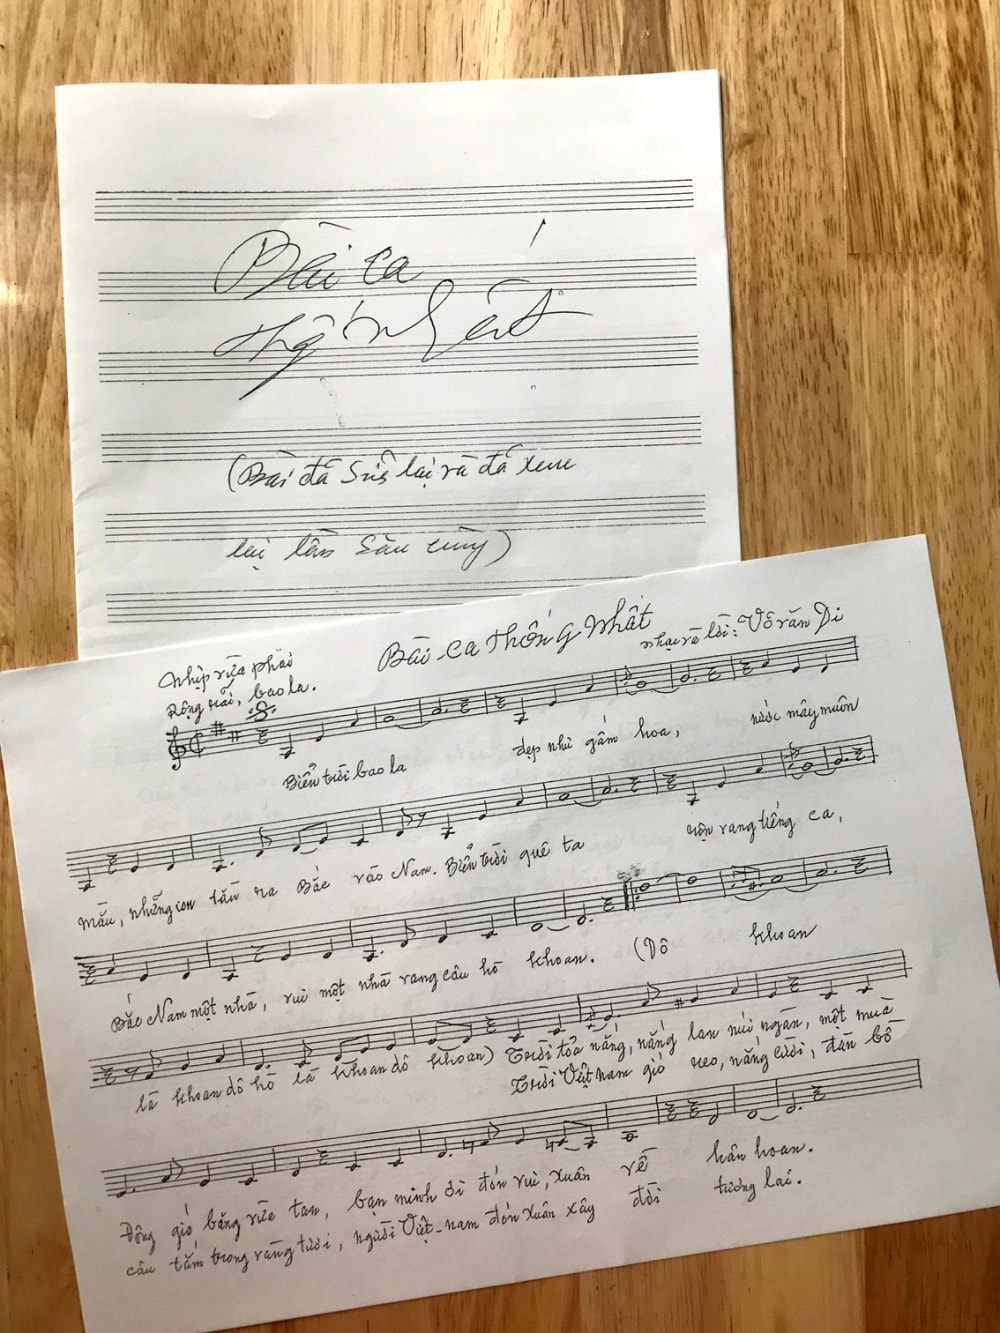 Bài ca
thống nhất
(Bài đã sửa lại và đã xem
lại lần sau cùng)
Bài ca thống nhất
nhạc và lời: Võ văn Di
Nhịp vừa phải
Rộng rãi, bao la.
Biển trời bao la đẹp như gấm hoa, nước mây muôn
mầu, những con tầu ra Bắc vào Nam. Biển trời quê ta rộn rang tiếng ca,
Bắc Nam một nhà, vui một nhà vang câu hò khoan. (Dô khoan
là khoan dô hò là khoan dô khoan) Trời tỏa nắng, nắng lan núi ngàn, một mùa
Trời Việt nam gió reo, nắng cười, đàn bồ
Đông gió băng vừa tan, bạn mình ơi đón vui, xuân về hân hoan.
câu tắm trong vàng tươi, người Việt-nam đón xuân xây đời tương lai.